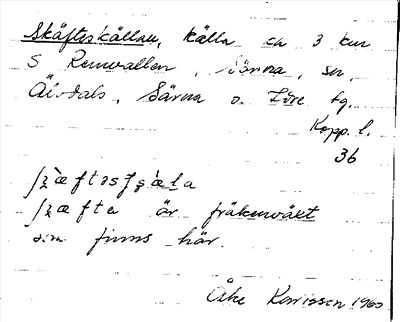 Skäfteskällan, källa ca 3 km
S Renvallen, Särna, sn,
Älvdals, Särna o. Idre tg.
Kopp. l.
36
är fräkenväxt
som finns här.
Åke Karlsson 1960